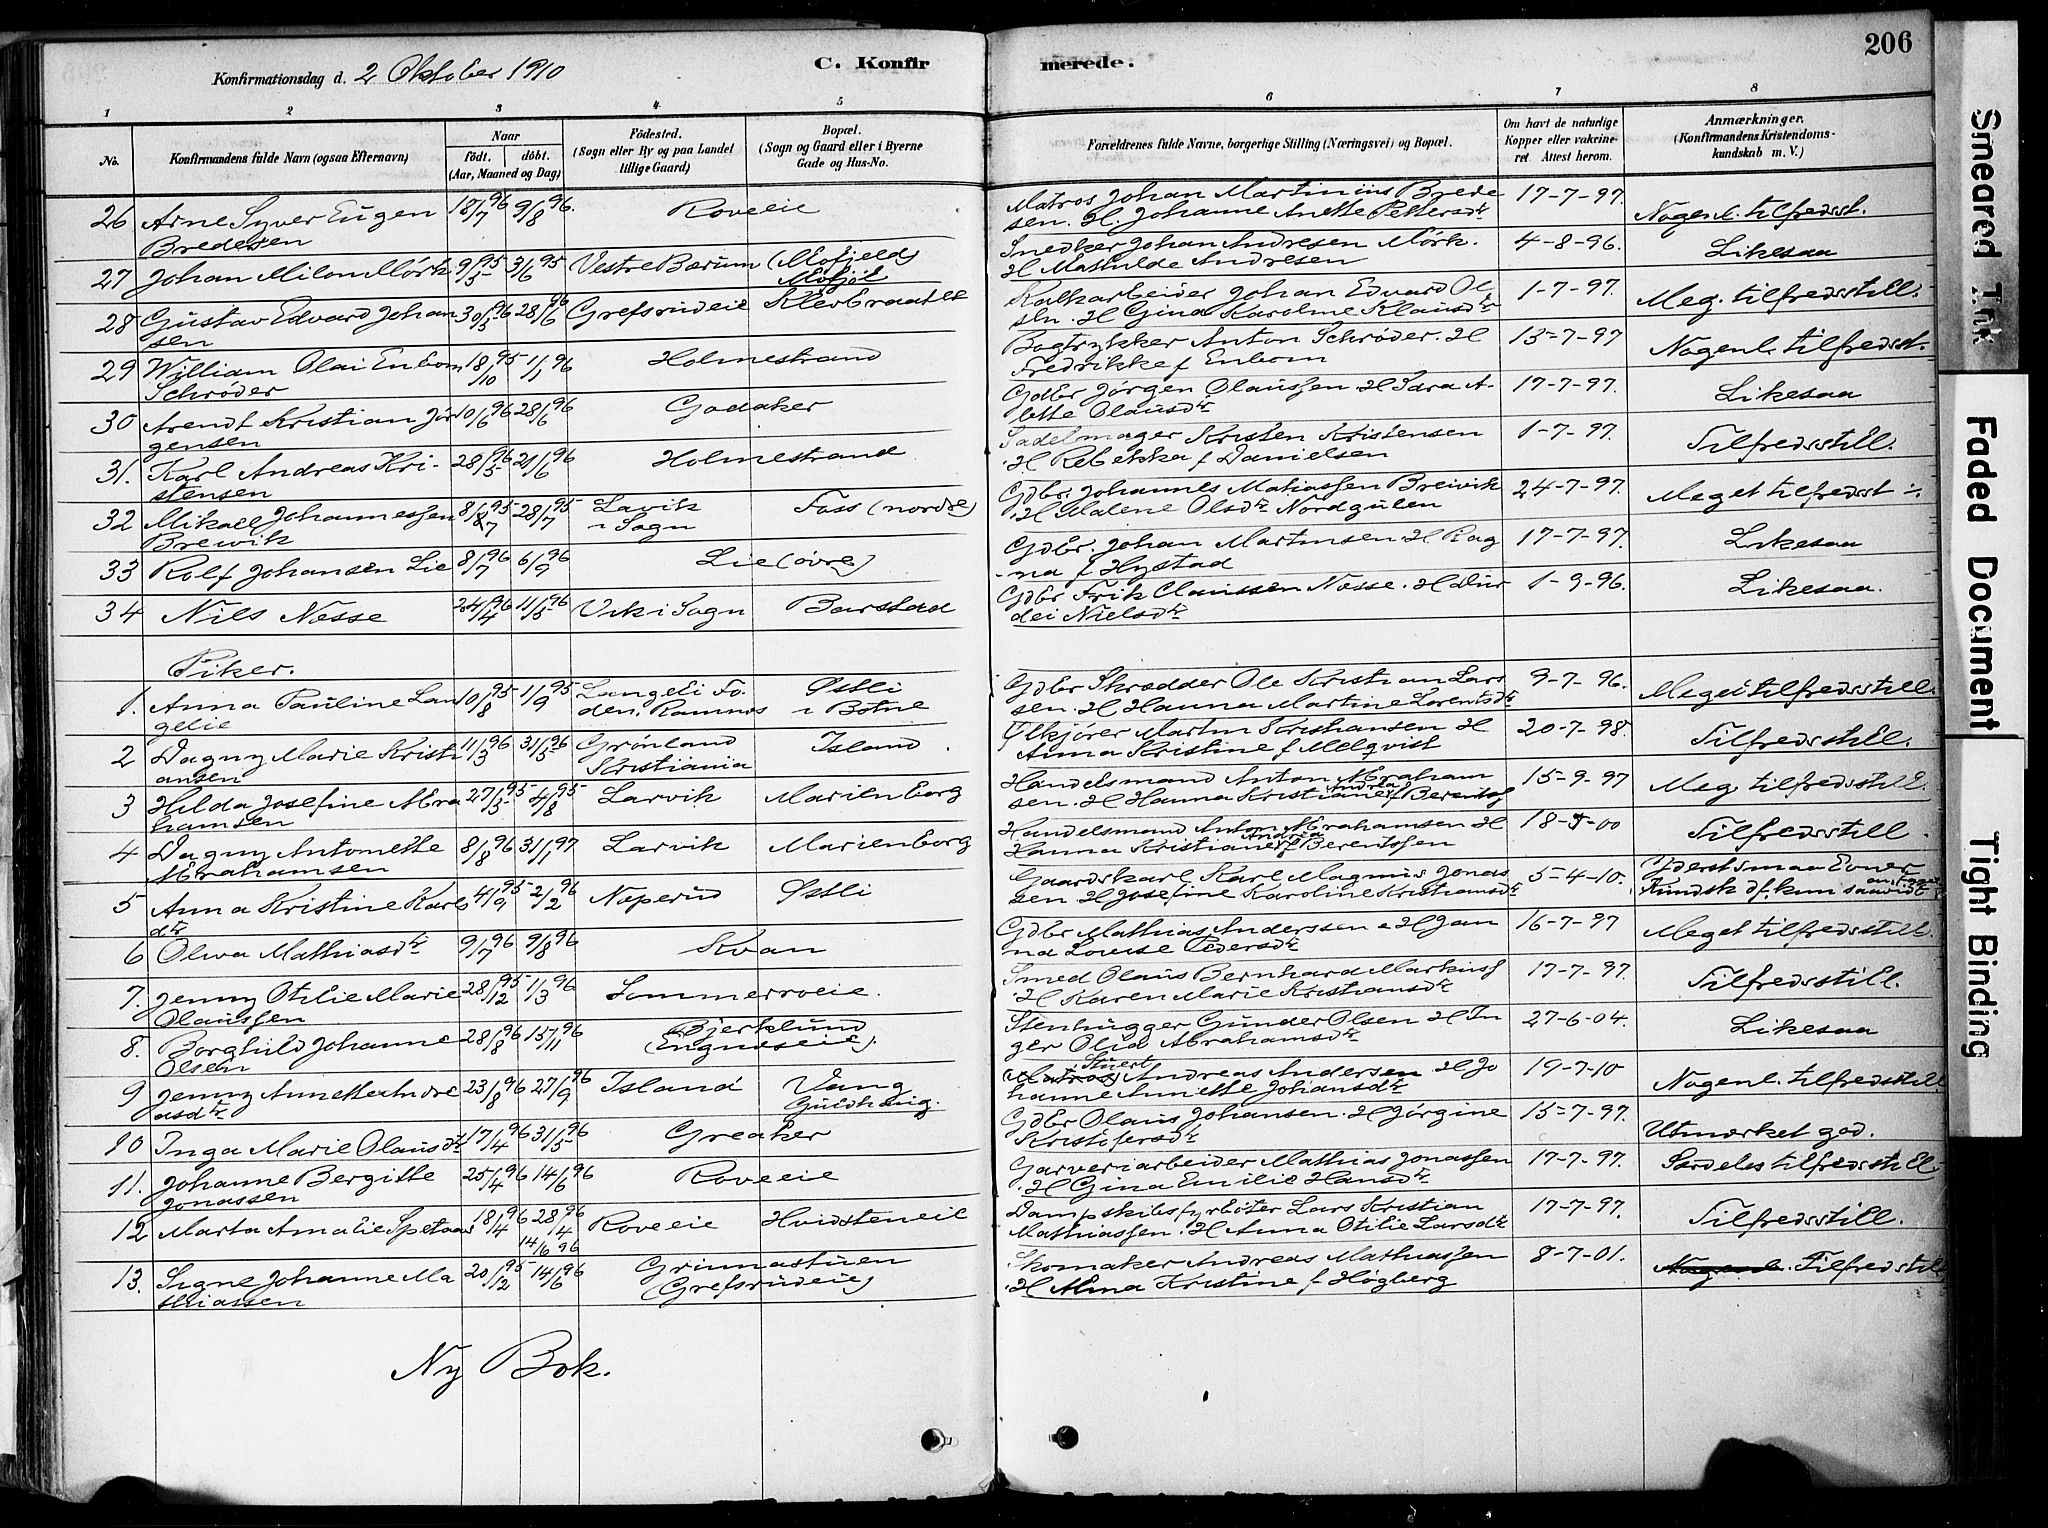 206
Konfirmationsdag d. 2 Oktober 1910
C. Konfir
merede.
1 2 3 4 5 6 7 8
No.
Konfirmandens fulde Navn (ogsaa Efternavn)
Naar
født. døbt.
(Aar, Maaned og Dag)
Fødested.
(Sogn eller By og paa Landet
tillige Gaard)
Bopæl.
(Sogn og Gaard eller i Byerne
Gade og Hus-No.
Forældrenes fulde Navne, borgerlige Stilling (Næringsvei) og Bopæl.
Om havt de naturlige
Kopper eller vakcine-
ret Attest herom.
Anmærkninger.
(Konfirmandens Kristendoms-
kundskab m. V.)
26 Arne Syver Eugen 18/7 96 9/8 96 Roveeie
Bredesen
Matros Johan Martinius Brede 17-7-97.
sen. H. Johanne Anette Pettersdtr Nogenl. tilfredsst.
27 Johan Milon Mørk 9/5 95 3/6 95 Vestre Bærum (Mofjeld)
Snedker Johan Andresen Mørk. 4-8-96. Likesaa
H Mathilde Andresen
28 Gustav Edvard Johan 30/3 96 28/6 96 Grefsrudeie Klevbraaten
sen
Kalkarbeider Johan Edvard Ol 1-7-97. Meg. tilfredsstill.
sen. H Gina Karoline Klausdtr
29 William Olai Enbom 18/10 95 1/1 96 Holmestrand
Schrøder
Bogtrykker Anton Schrøder. H 13-7-97 Nogenl. tilfredsst.
Fredrikke f Enbom
30 Arendt Kristian Jør 10/6 96 28/6 96 Godaker
gensen
Gdbr Jørgen Olaussen H Sara A- 17-7-97. Likesaa
lette Olausdtr
31. Karl Andreas Kri- 28/5 96 21/6 96 Holmestrand
stensen
Sadelmager Kristen Kristensen 1-7-97. Tilfredsstill.
H Rebekka f Danielsen
32 Mikael Johannessen 28/7 95 Lavik Foss (nordre)
Breivik i Sogn
Gdbr. Johannes Matiassen Breivik 24-7-97. Meget tilfredsst
H Malene Olsdtr Nordgulen
33 Rolf Johansen Lie 8/7 96 6/9 96 Lie (øvre)
Gdbr. Johan Martinsen H Rag 17-7-97. Likesaa
na f Hystad
34 Nils Nesse 24/4 96 11/5 96 Vik i Sogn Barstad
Gdbr Erik Claussen Nesse. H Dur 1-9-96. Likesaa.
dei Nielsdtr
Piker.
1. Anna Pauline Lan 10/8 95 1/9 95 Langeli Fo Østli
gelie den. Ramnes i Botne
Gdbr Skrædder Ole Kristian Lar 9-7-96. Meget tilfredsstill.
sen. H Hanna Martine Lorentsdtr
2 Dagny Marie Kristi 11/3 96 31/5 96 Grønland Island
ansen Kristiania
Ølkjører Martin Kristiansen H 20-7-98. Tilfredsstill.
Anna Kristine f Melqvist
3 Hilda Josefine Abra 27/5 95 4/8 95 Larvik Marienborg
hamsen
Handelsmand Anton Abraham 15-9-97 Meg. tilfredsstill.
sen. H Hanna Kristiane Andrea f Berentsg
4 Dagny Antonette 8/8 96 31/1 97 Larvik Marienborg
Abrahamsen
Handelsmand Anton Abrahamsen H 18-5-00 Tilfredsstill
Hanna Kristiane Andrea f Berentssen
5 Anna Kristine Karls 4/9 95 2/2 96 Noperud Østli
dtr
Gaardskarl Karl Magnus Jonas 5-4-10.
sen H Josefine Karoline Kristiansdtr
6 Oliva Mathiasdtr 9/7 96 9/8 96 Kvan
Gdbr Mathias Anderssen H Jan 16-7-97 Meget tilfredsstill.
na Lovise Pedersdtr
7. Jenny Otilie Marie 28/12 95 1/3 96 Sommerroeie.
Olaussen
Smed Olaus Bernhard Markusf 17-7-97. Tilfredsstill.
H Karen Marie Kristiansdtr
8. Borghild Johanne 28/8 96 15/11 96 Bjerklund
Olsen (Engnæseie).
Stenhugger Gunder Olsen H In 27-6-04. Likesaa
ger Olia Abrahamsdtr
9 Jenny Annette Andre 23/8 96 27/9 96 Island Vang
asdtr Guldhaug.
Stuert
(Matros) Andreas Andersen H Jo 19-7-10 Nogenl. tilfredsstill.
hanne Annette Johansdtr
10 Inga Marie Olausdtr 17/4 96 31/5 96 Greaker
Gdbr Olaus Johansen. H Jørgine 15-7-97. Utmærket god.
Kristofersdtr
11. Johanne Bergitte 25/4 96 14/6 96 Roveeie
Jonassen
Garveriarbeider Mathias Jonassen 17-7-97. Særdeles tilfredsstill.
H Gina Emilie Hansdtr
12 Marta Amalie Spetaas 18/4 96 28/4 96 Roveeie Hvidsteneie
14/6 96
Dampskibsfyrbøter Lars Kristian 17-7-97. Tilfredsstill.
Mathiassen. H Anna Otilie Larsdtr
13. Signe Johanne Ma 20/12 95 14/6 96 Grinnastuen
thiassen (Grefsrudeie)
Skomaker Andreas Mathiassen 8-7-01. Nogenl. Tilfredsstill
H Alma Kristine f Høgberg
Ny Bok.
Smeared Ink
Faded Document
Tight Binding